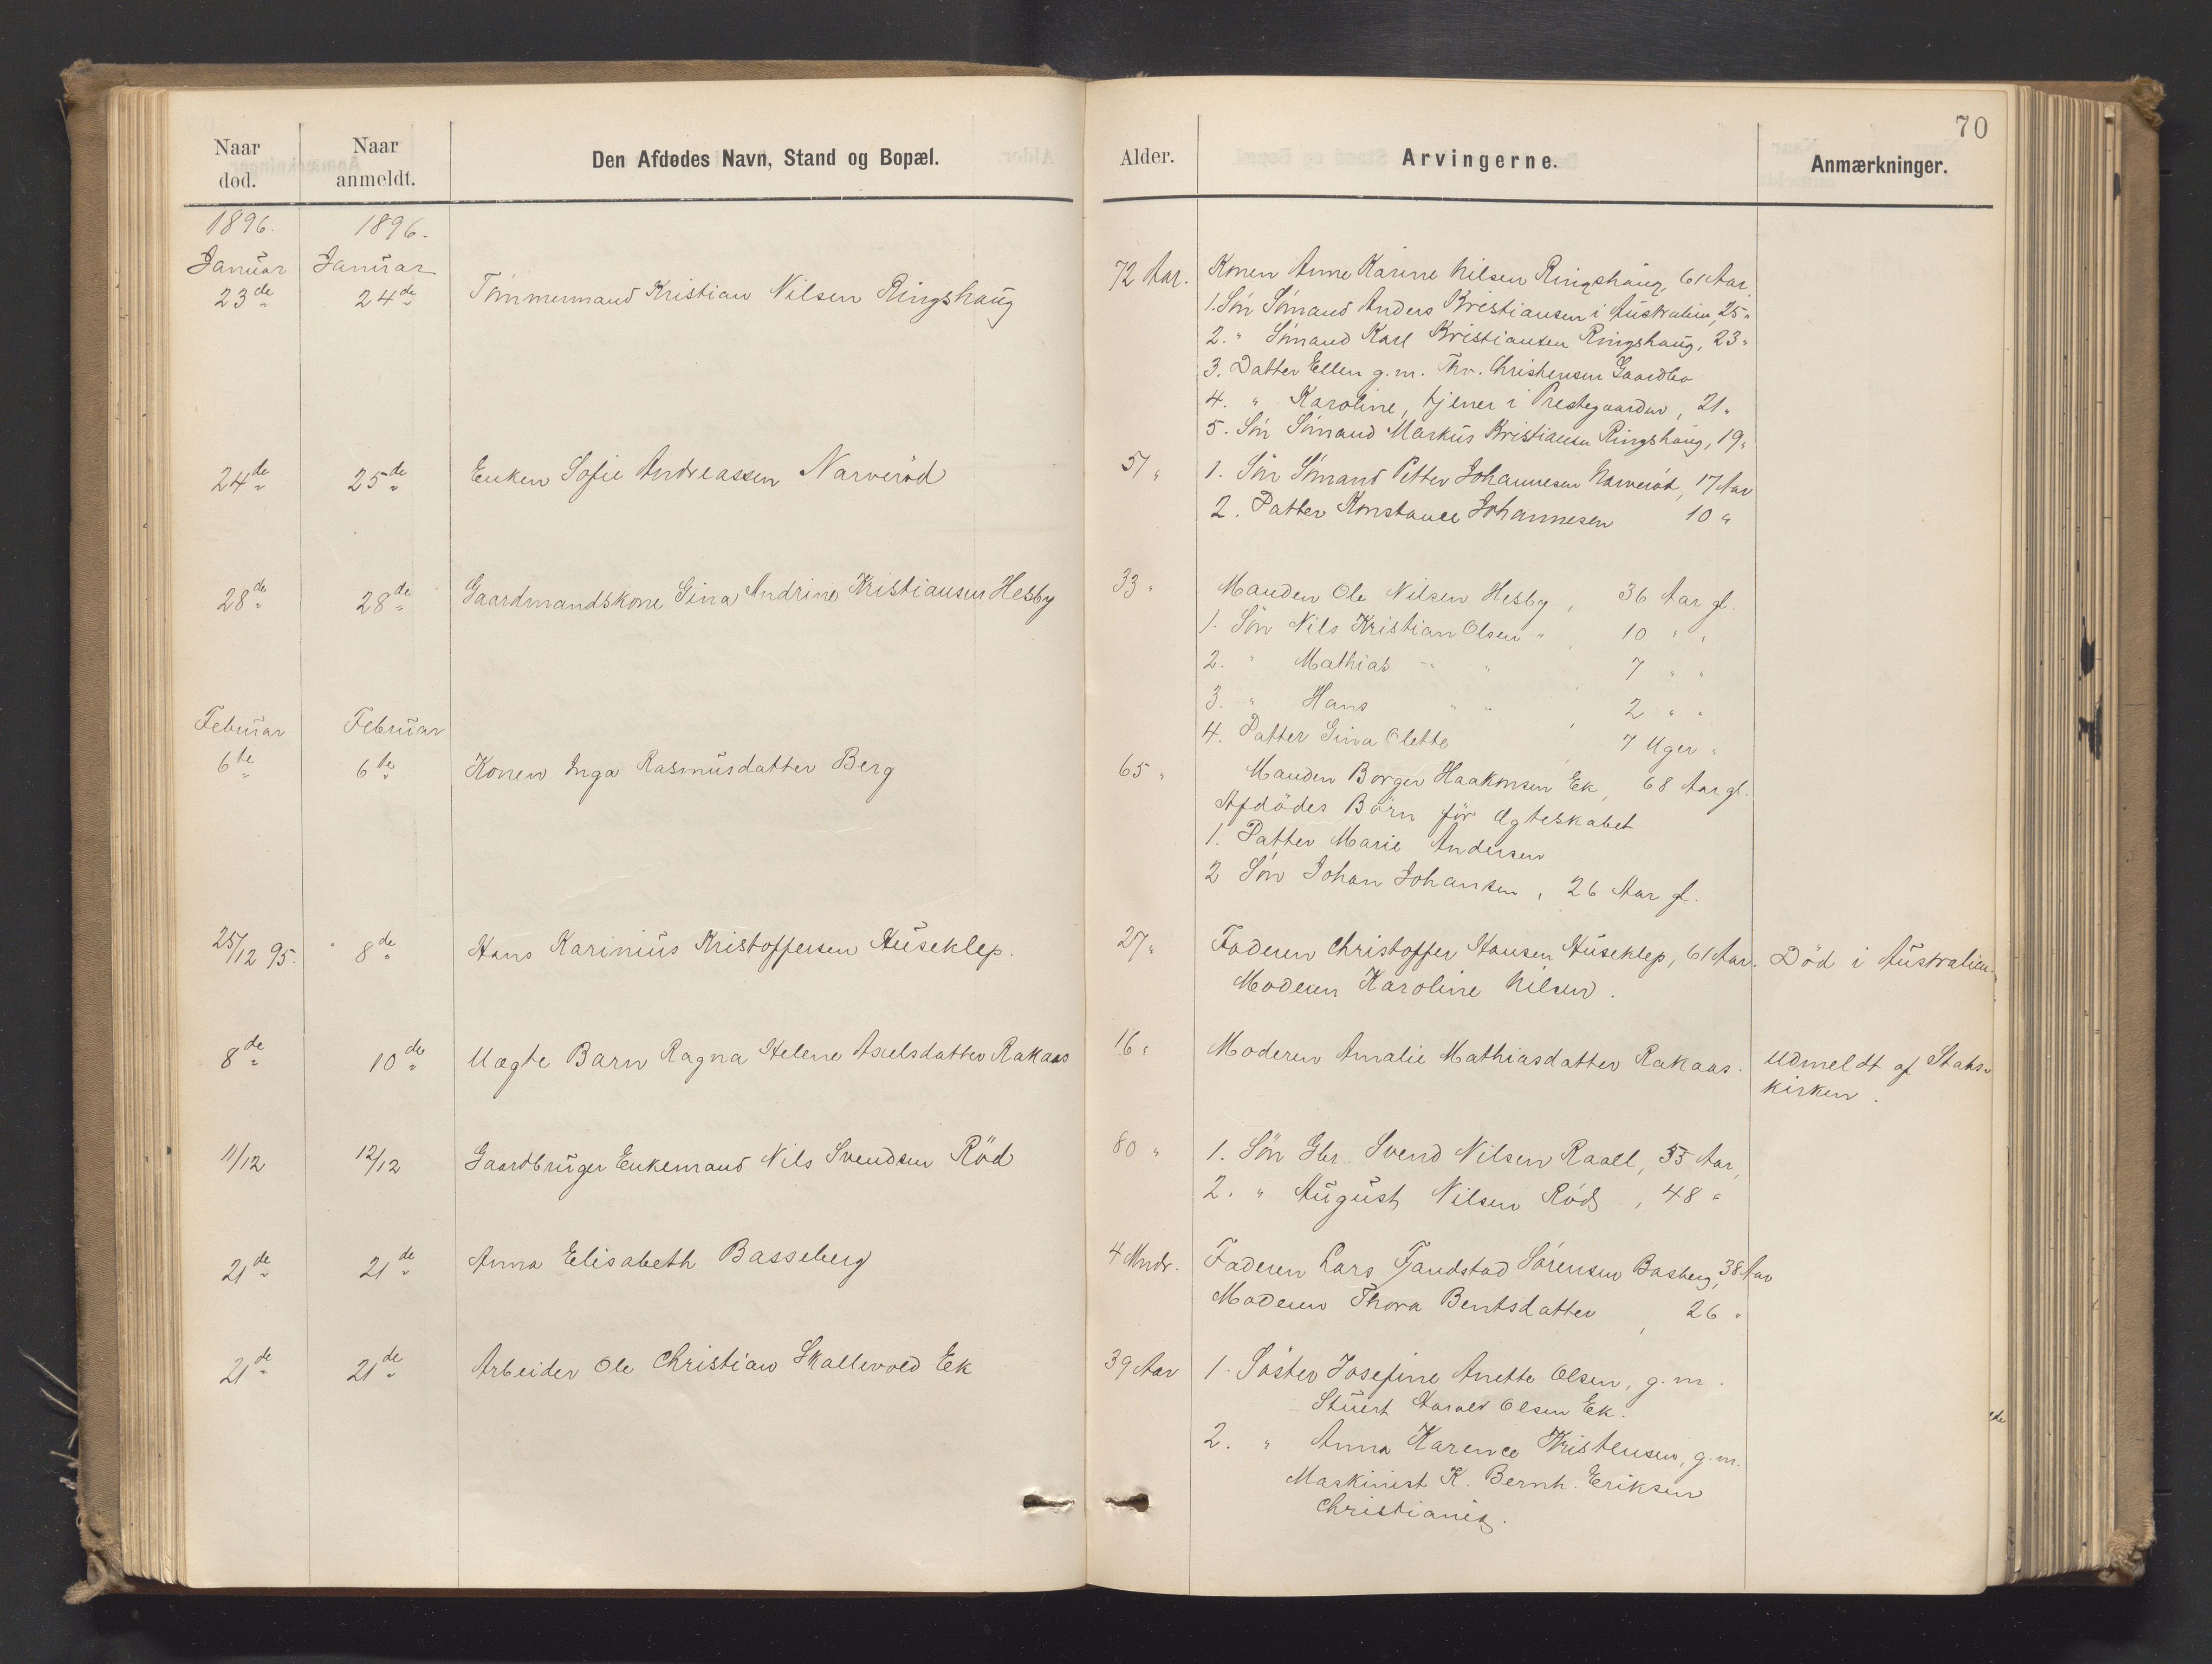 70
Naar død.
Naar anmeldt.
Den Afdødes Navn, Stand og Bopæl.
Alder.
Arvingerne.
Anmærkninger.
1896. 1896.
Januar Januar
23de 24de Tömmermand Kristian Nilsen Ringshaug 72 Aar. Konen Anne Karine Nilsen Ringshaug, 61 Aar,
1. Sön Sömand Anders Kristiansen i Australien, 25 "
2. " Sömand Karl Kristiansen Ringshaug, 23 "
3. Datter Ellen g. m. Thv. Christensen Gaardbo
4. " Karoline, tjener i Prestegaarden, 21 "
5. Sön Sömand Markus Kristiansen Ringshaug, 19 "
24de 25de Enken Sofie Andreassen Narveröd 51 " 1. Sön Sömand Petter Johannesen Narveröd, 17 Aar
2. Datter Konstance Johannesen 10 "
28de 28de Gaardmandskone Gina Andrine Kristiansen Hesby 33 " Manden Ole Nilsen Hesby, 36 Aar gl.
1. Sön Nils Kristian Olsen " , 10 " "
2. " Mathias " " 7 " "
3. " Hans " " , 2 " "
4. Datter Gina Olette , 7 Uger "
Februar Februar
6te 6te Konen Inga Rasmusdatter Berg 65 " Manden Borger Haakonsen Ek, 68 Aar gl.
Afdödes Börn för Ægteskabet
1. Datter Marie Andersen
2 Sön Johan Johansen, 26 Aar gl.
25/12 95. 8de Hans Karinius Kristoffersen Huseklep. 27 " Faderen Christoffer Hansen Huseklep, 61 Aar. Död i Australien.
Moderen Karoline Nilsen.
8de 10de Uægte Barn Ragna Helene Axelsdatter Rakaas 16 " Moderen Amalie Mathiasdatter Rakaas. Udmeldt af Stats-
kirken.
11/12 12/12 Gaardbruger Enkemand Nils Svendsen Röd 80 " 1. Sön Gbr. Svend Nilsen Raael, 55 Aar,
2. " August Nilsen Röd, 48 "
21de 21de Anna Elisabeth Basseberg 4 Mndr. Faderen Lars Tandstad Sörensen Basberg, 38 Aar
Moderen Thora Bentsdatter, 26 "
21de 21de Arbeider Ole Christian Skallevold Ek 39 Aar 1. Söster Josefine Anette Olsen, g. m.
Stuert Harald Olsen Ek.
2. " Anna Karence Kristensen, g. m.
Maskinist K. Bernh. Eriksen
Christiania.